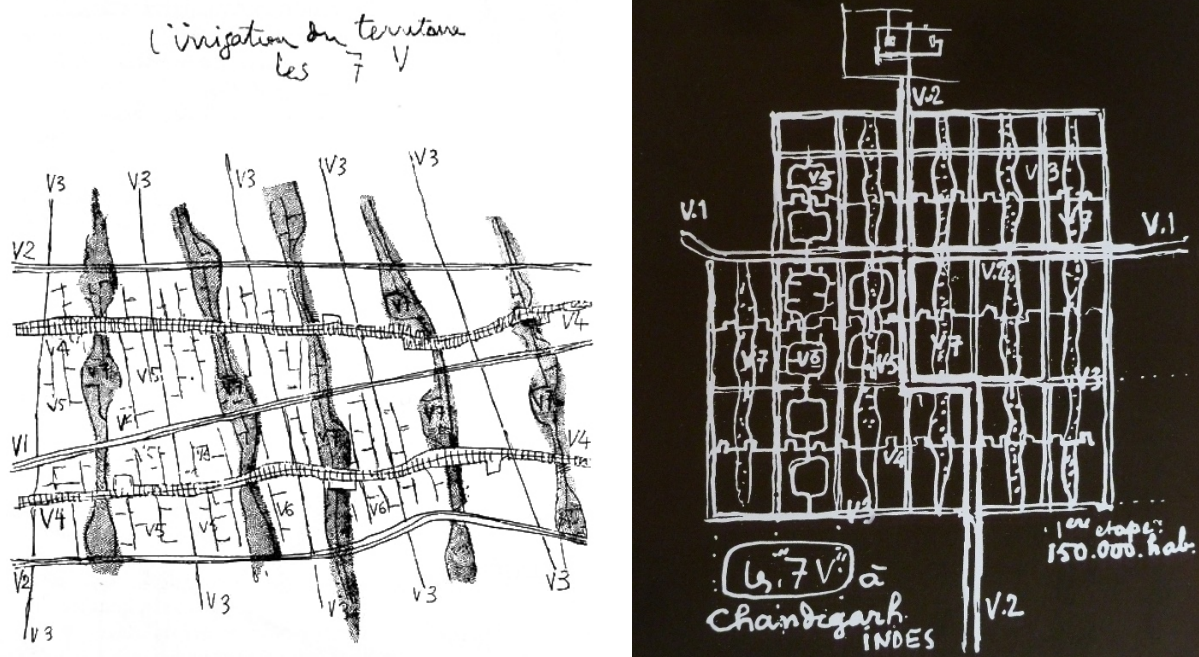 l'irrigation du territoire
les 7 V
V3 V3 V3 V3 V3
V2
V4 V7 V4
V5 V5 V7
V6
V1 V7 V4
V5
V4 V5 V6 V6
V2 V3 V3 V3 V3
V3
V.2
V5 V3
V.1 V7 V.1
V.2
V7 V6 V5 V7 V3
V4
V3
1ère étape:
150.000.hab.
les "7 V" à
Chandigarh
INDES
V.2